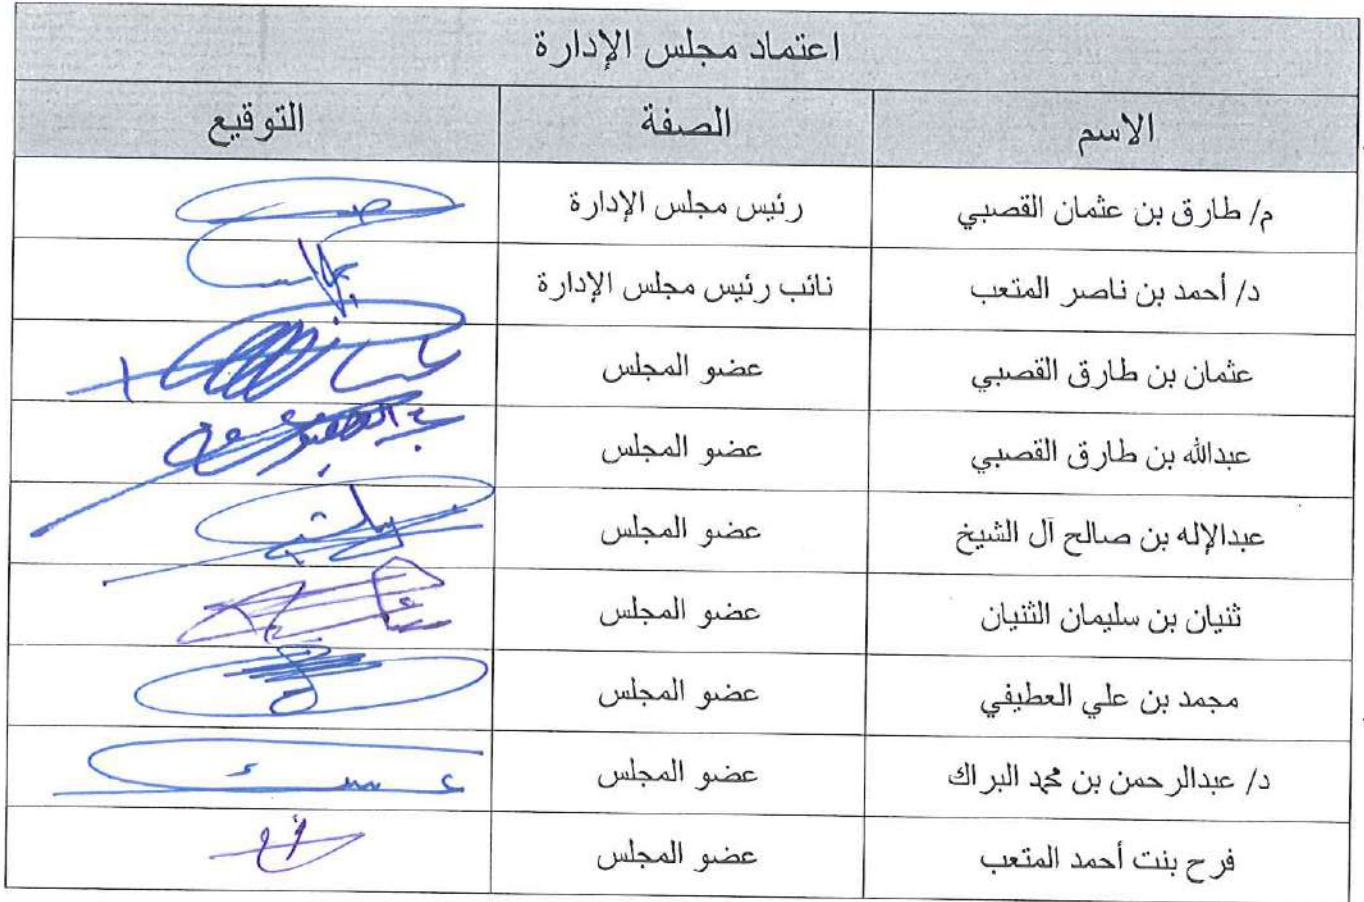 اعتماد مجلس الإدارة
الاسم الصفة التوقيع
م/ طارق بن عثمان القصبي رئيس مجلس الإدارة
د/ أحمد بن ناصر المتعب نائب رئيس مجلس الإدارة
عثمان بن طارق القصبي عضو المجلس
عبدالله بن طارق القصبي عضو المجلس
عبدالإله بن صالح آل الشيخ عضو المجلس
ثنيان بن سليمان الثنيان عضو المجلس
مجمد بن علي العطيفي عضو المجلس
د/ عبدالرحمن بن محمد البراك عضو المجلس
فرح بنت أحمد المتعب عضو المجلس